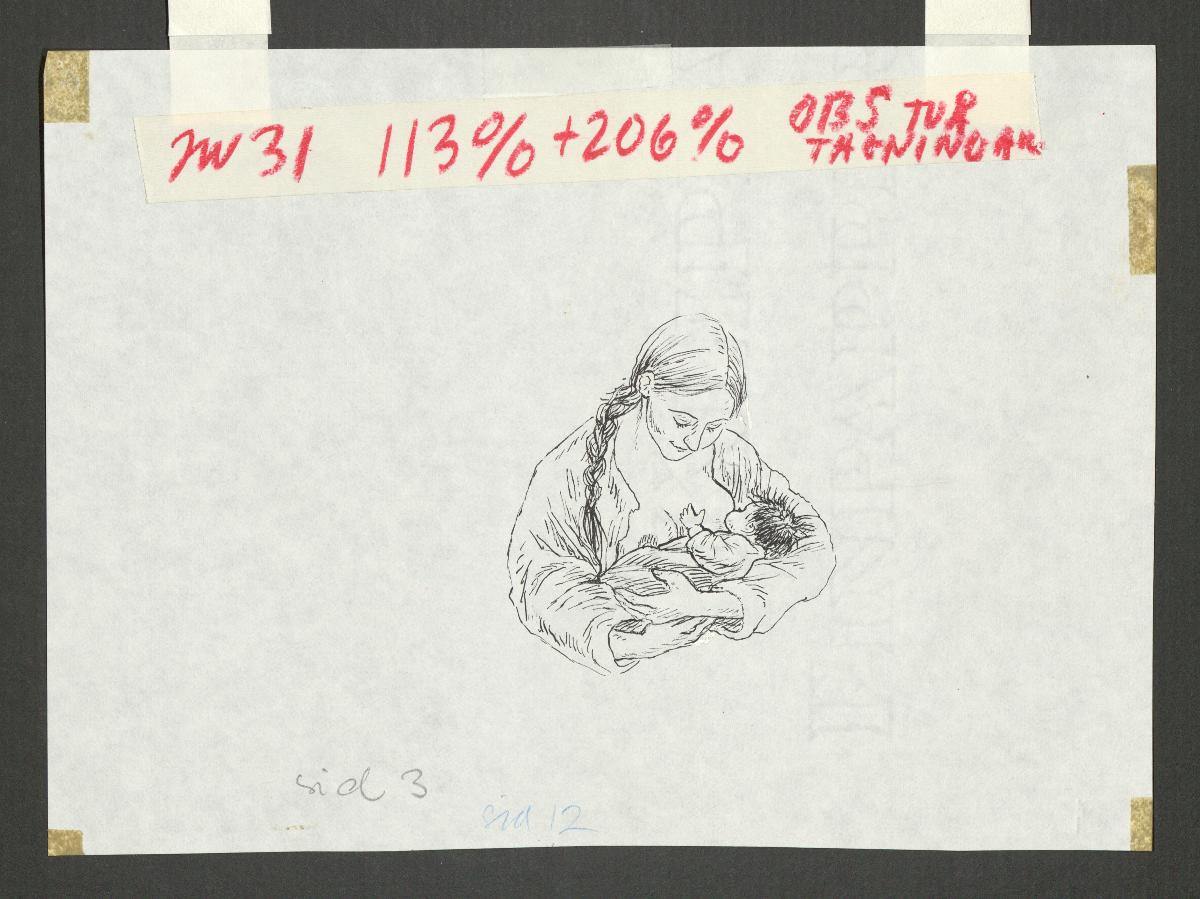 31 113% + 206% OBS TVÅ
TAGNINGAR
sid 3
sid 12